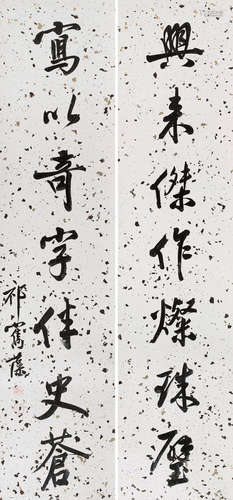 興来傑作燦珠璧
寫以奇字侔史蒼
祁寯藻